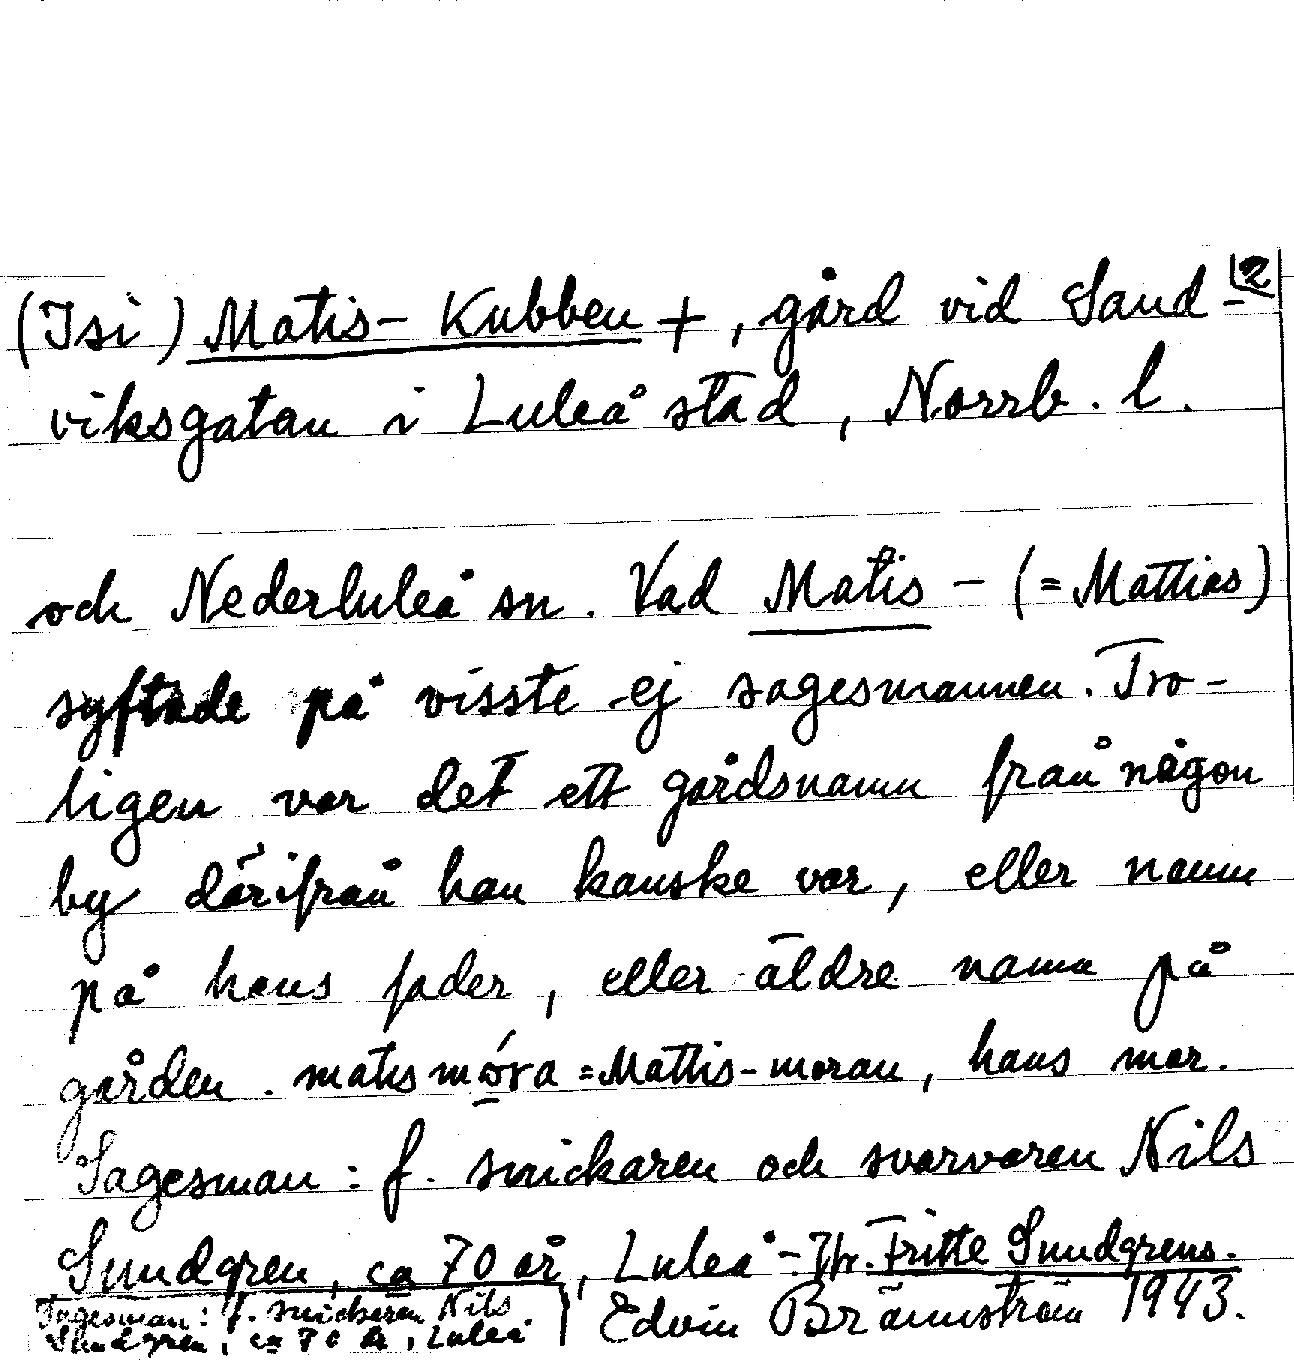 2
(Isi) Matis-Kubben +, gård vid Sand-
viksgatan i Luleå stad, Norrb. l.
och Nederluleå sn. Vad Matis - (= Mattias)
syftade på visste ej sagesmannen. Tro-
ligen var det ett gårdsnamn från någon
by därifrån han kanske var, eller namn
på hans fader, eller äldre namn på
gården. matismóra = Mattis-moran, hans mor.
Sagesman: f. snickaren och svarvaren Nils
Sundgren, ca 70 år, Luleå - Fritte Sundgrens.
Sagesman: f. snickaren Nils
Sundgren, ca 70 år, Luleå
Edvin Brännström 1943.